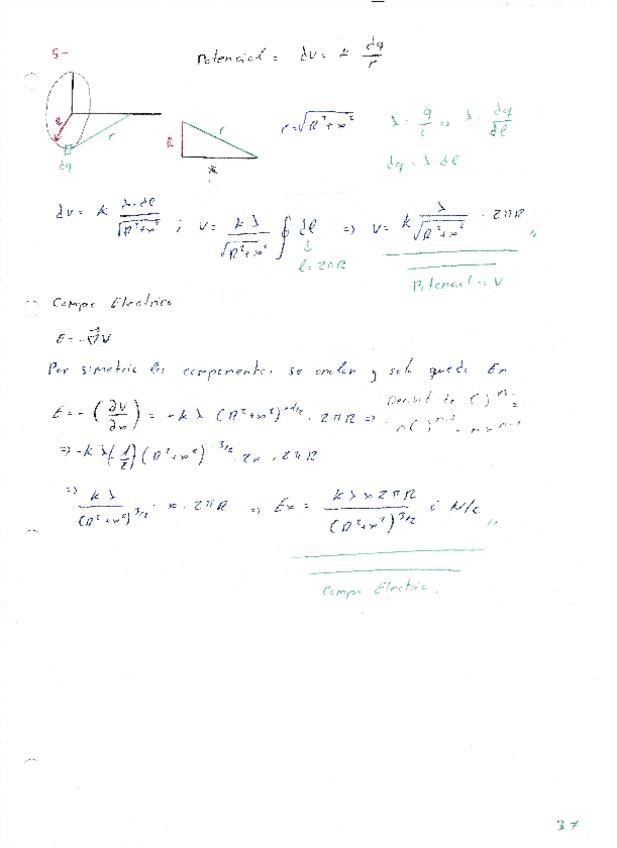 5-
Potencial = dv = k dq/r
R r dq
R r x
r = √(R²+x²)
λ = q/l => λ = dq/dl
dq = λ·dl
dv = k λ·dl/√(R²+x²) ; v = kλ/√(R²+x²) ∮ dl => v = k λ/√(R²+x²) · 2πR
↓
l = 2πR
Potencial = V
Campo Electrico
E = -∇⃗V
Por simetria las componentes se anulan y solo queda Ex
E = - (∂v/∂x) = -kλ (R²+x²)^-1/2 · 2πR =>
=> -kλ(-1/2)(R²+x²)^-3/2 · 2x · 2πR
=> kλ/(R²+x²)^3/2 · x · 2πR => Ex = kλx2πR/(R²+x²)^3/2 i N/c
Campo Electrico.
37